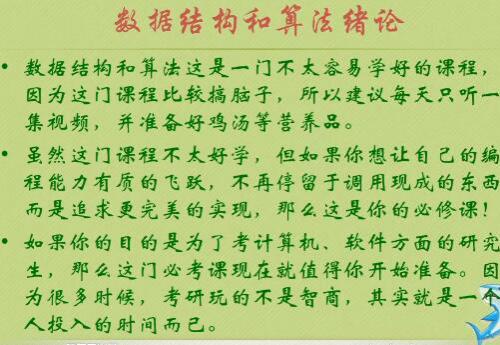 数据结构和算法绪论
• 数据结构和算法这是一门不太容易学好的课程，
因为这门课程比较搞脑子，所以建议每天只听一
集视频，并准备好鸡汤等营养品。
• 虽然这门课程不太好学，但如果你想让自己的编
程能力有质的飞跃，不再停留于调用现成的东西
而是追求更完美的实现，那么这是你的必修课！
• 如果你的目的是为了考计算机、软件方面的研究
生，那么这门必考课现在就值得你开始准备。因
为很多时候，考研玩的不是智商，其实就是一个
人投入的时间而已。